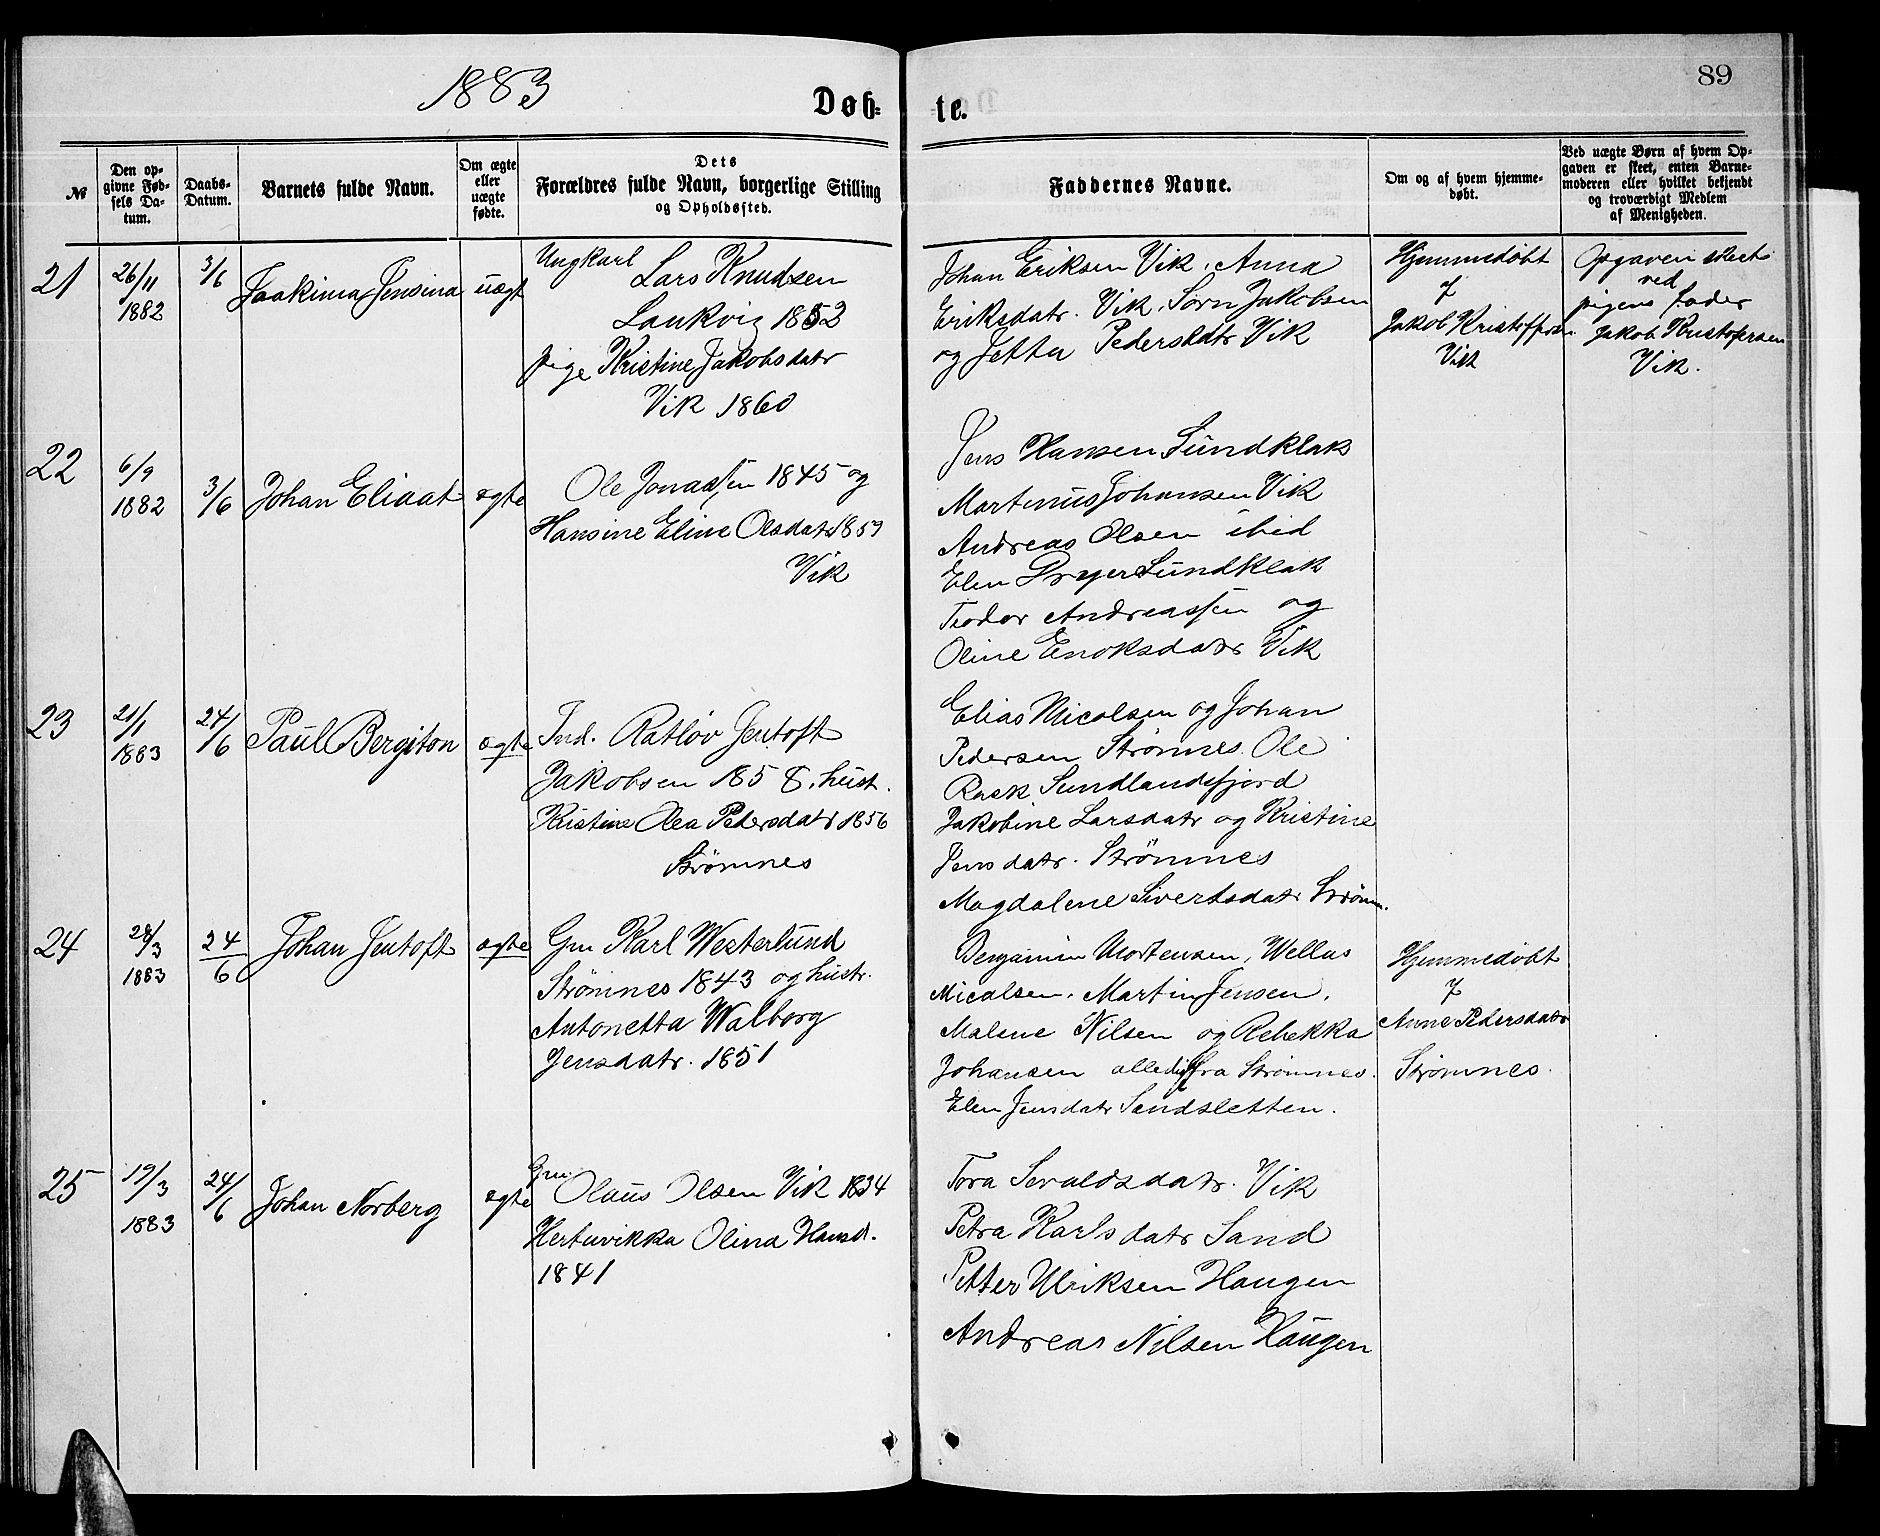 1883
Døb-
te.
89
№
Den op-
givne Fød-
sels Da-
tum.
Daabs-
Datum.
Barnets fulde Navn.
Om ægte
eller
uægte
fødte.
Dets
Forældres fulde Navn, borgerlige Stilling
og Opholdssted.
Faddernes Navne.
Om og af hvem hjemme-
døbt.
Ved uægte Børn af hvem Op-
gaven er skeet, enten Barne-
moderen eller hvilket bekjendt
og troværdigt Medlem
af Menigheden.
21
26/11
1882
3/6
Joakima Jensina
uægt
Ungkarl
Lars Knudsen
Laukvig 1852
pige Kristine Jakobsdatr
Vik 1860
Johan Eriksen Vik. Anna
Eriksdatr. Vik. Sørn Jakobsen
og Jetta Pedersdatr Vik
Hjemmedøbt
af
Jakob Kristoffersen
Vik
Opgaven skeet
ved
pigens fader
Jakob Kristofersen
Vik.
22
6/9
1882
3/6
Johan Eliaat
ægte
Ole Jonassen 1845 og
Hansine Eline Olsdatr 1859
Vik
Jens Hansen Sundklak
Martinus Johansen Vik
Andreas Olsen ibid
Elen Dreyer Sundklak
Teodor Andreassen og
Oline Enoksdatr Vik
23
21/1
1883
24/6
Paul Bergiton
ægte
Ind. Ratløv Jentoft
Jakobsen 1858, hust.
Kristine Olea Pedersdatr 1856
Strømnes
Elias Nicolsen og Johan
Pedersen Strømnes. Ole
Rask Sundlandsfjord
Jakobine Larsdatr og Kristine
Jensdatr. Strømnes
Magdalene Sivertsdatr Strømn.
24
28/3
1883
24/6
Johan Jentoft
ægte
Gm Karl Westerlund
Strømnes 1843 og hustr.
Antonetta Walborg
Jensdatr. 1851
Benjamin Mortensen, Wellas
Nicolsen. Martin Jensen.
Malene Nilsen og Rebekka
Johansen alle fra Strømnes.
Elen Jensdatr Sandsletten.
Hjemmedøbt
af
Anne Pedersdatr
Strømnes.
25
19/3
1883
24/6
Johan Norberg
ægte
Gm
Olaus Olsen Vik 1834
Hertuvikka Olina Hansd.
1841
Tora Sevaldsdatr. Vik
Petra Karlsdatr Sand
Petter Ulriksen Haugen
Andreas Nilsen Haugen